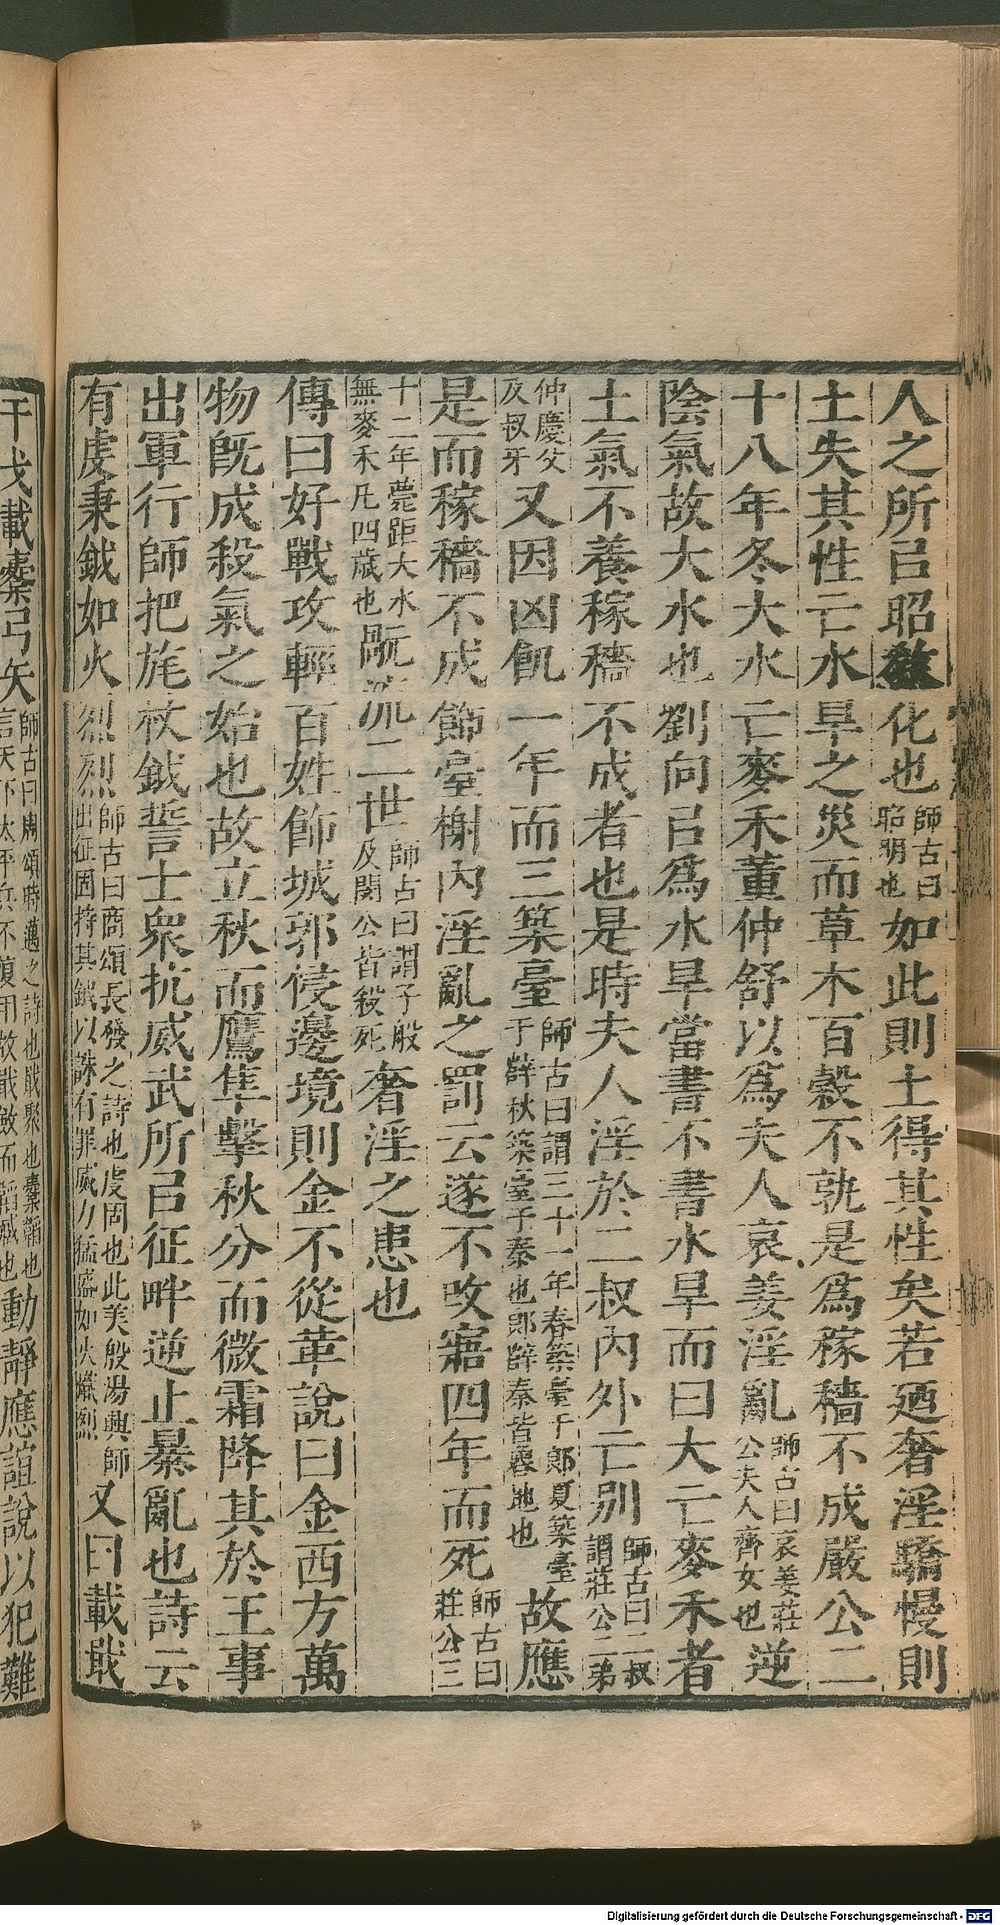 人之所㠯昭敎化也師古曰昭明也如此則土得其性矣若廼奢淫驕慢則
土失其性亡水旱之災而草木百穀不孰是爲稼穡不成嚴公二
十八年冬大水亡麥禾董仲舒以爲夫人哀姜淫亂師古曰哀姜莊公夫人齊女也逆
陰氣故大水也劉向㠯爲水旱當書不書水旱而曰大亡麥禾者
土氣不養稼穡不成者也是時夫人淫於二叔內外亡別師古曰二叔謂莊公二弟
仲慶父及叔牙又因凶飢一年而三築臺師古曰謂三十一年春築臺于郎夏築臺于薛秋築臺于秦也郎薛秦皆魯地也故應
是而稼穡不成飾臺榭內淫亂之罰云遂不改寤四年而死師古曰莊公三
十二年薨距大水無麥禾凡四歲也旤流二世師古曰謂子般及閔公皆殺死奢淫之患也
傳曰好戰攻輕百姓飾城郭侵邊境則金不從革說曰金西方萬
物旣成殺氣之始也故立秋而鷹隼擊秋分而微霜降其於王事
出軍行師把旄杖鉞誓士衆抗威武所㠯征畔逆止暴亂也詩云
有虔秉鉞如火烈烈師古曰商頌長發之詩也虔固也此美殷湯興師出征固持其鉞以誅有罪威力猛盛如火熾烈又曰載戢
干戈載櫜弓矢師古曰周頌時邁之詩也戢聚也櫜韜也言天下太平兵不復用故戢斂而韜臧也動靜應誼說以犯難
Digitalisierung gefördert durch die Deutsche Forschungsgemeinschaft - DFG